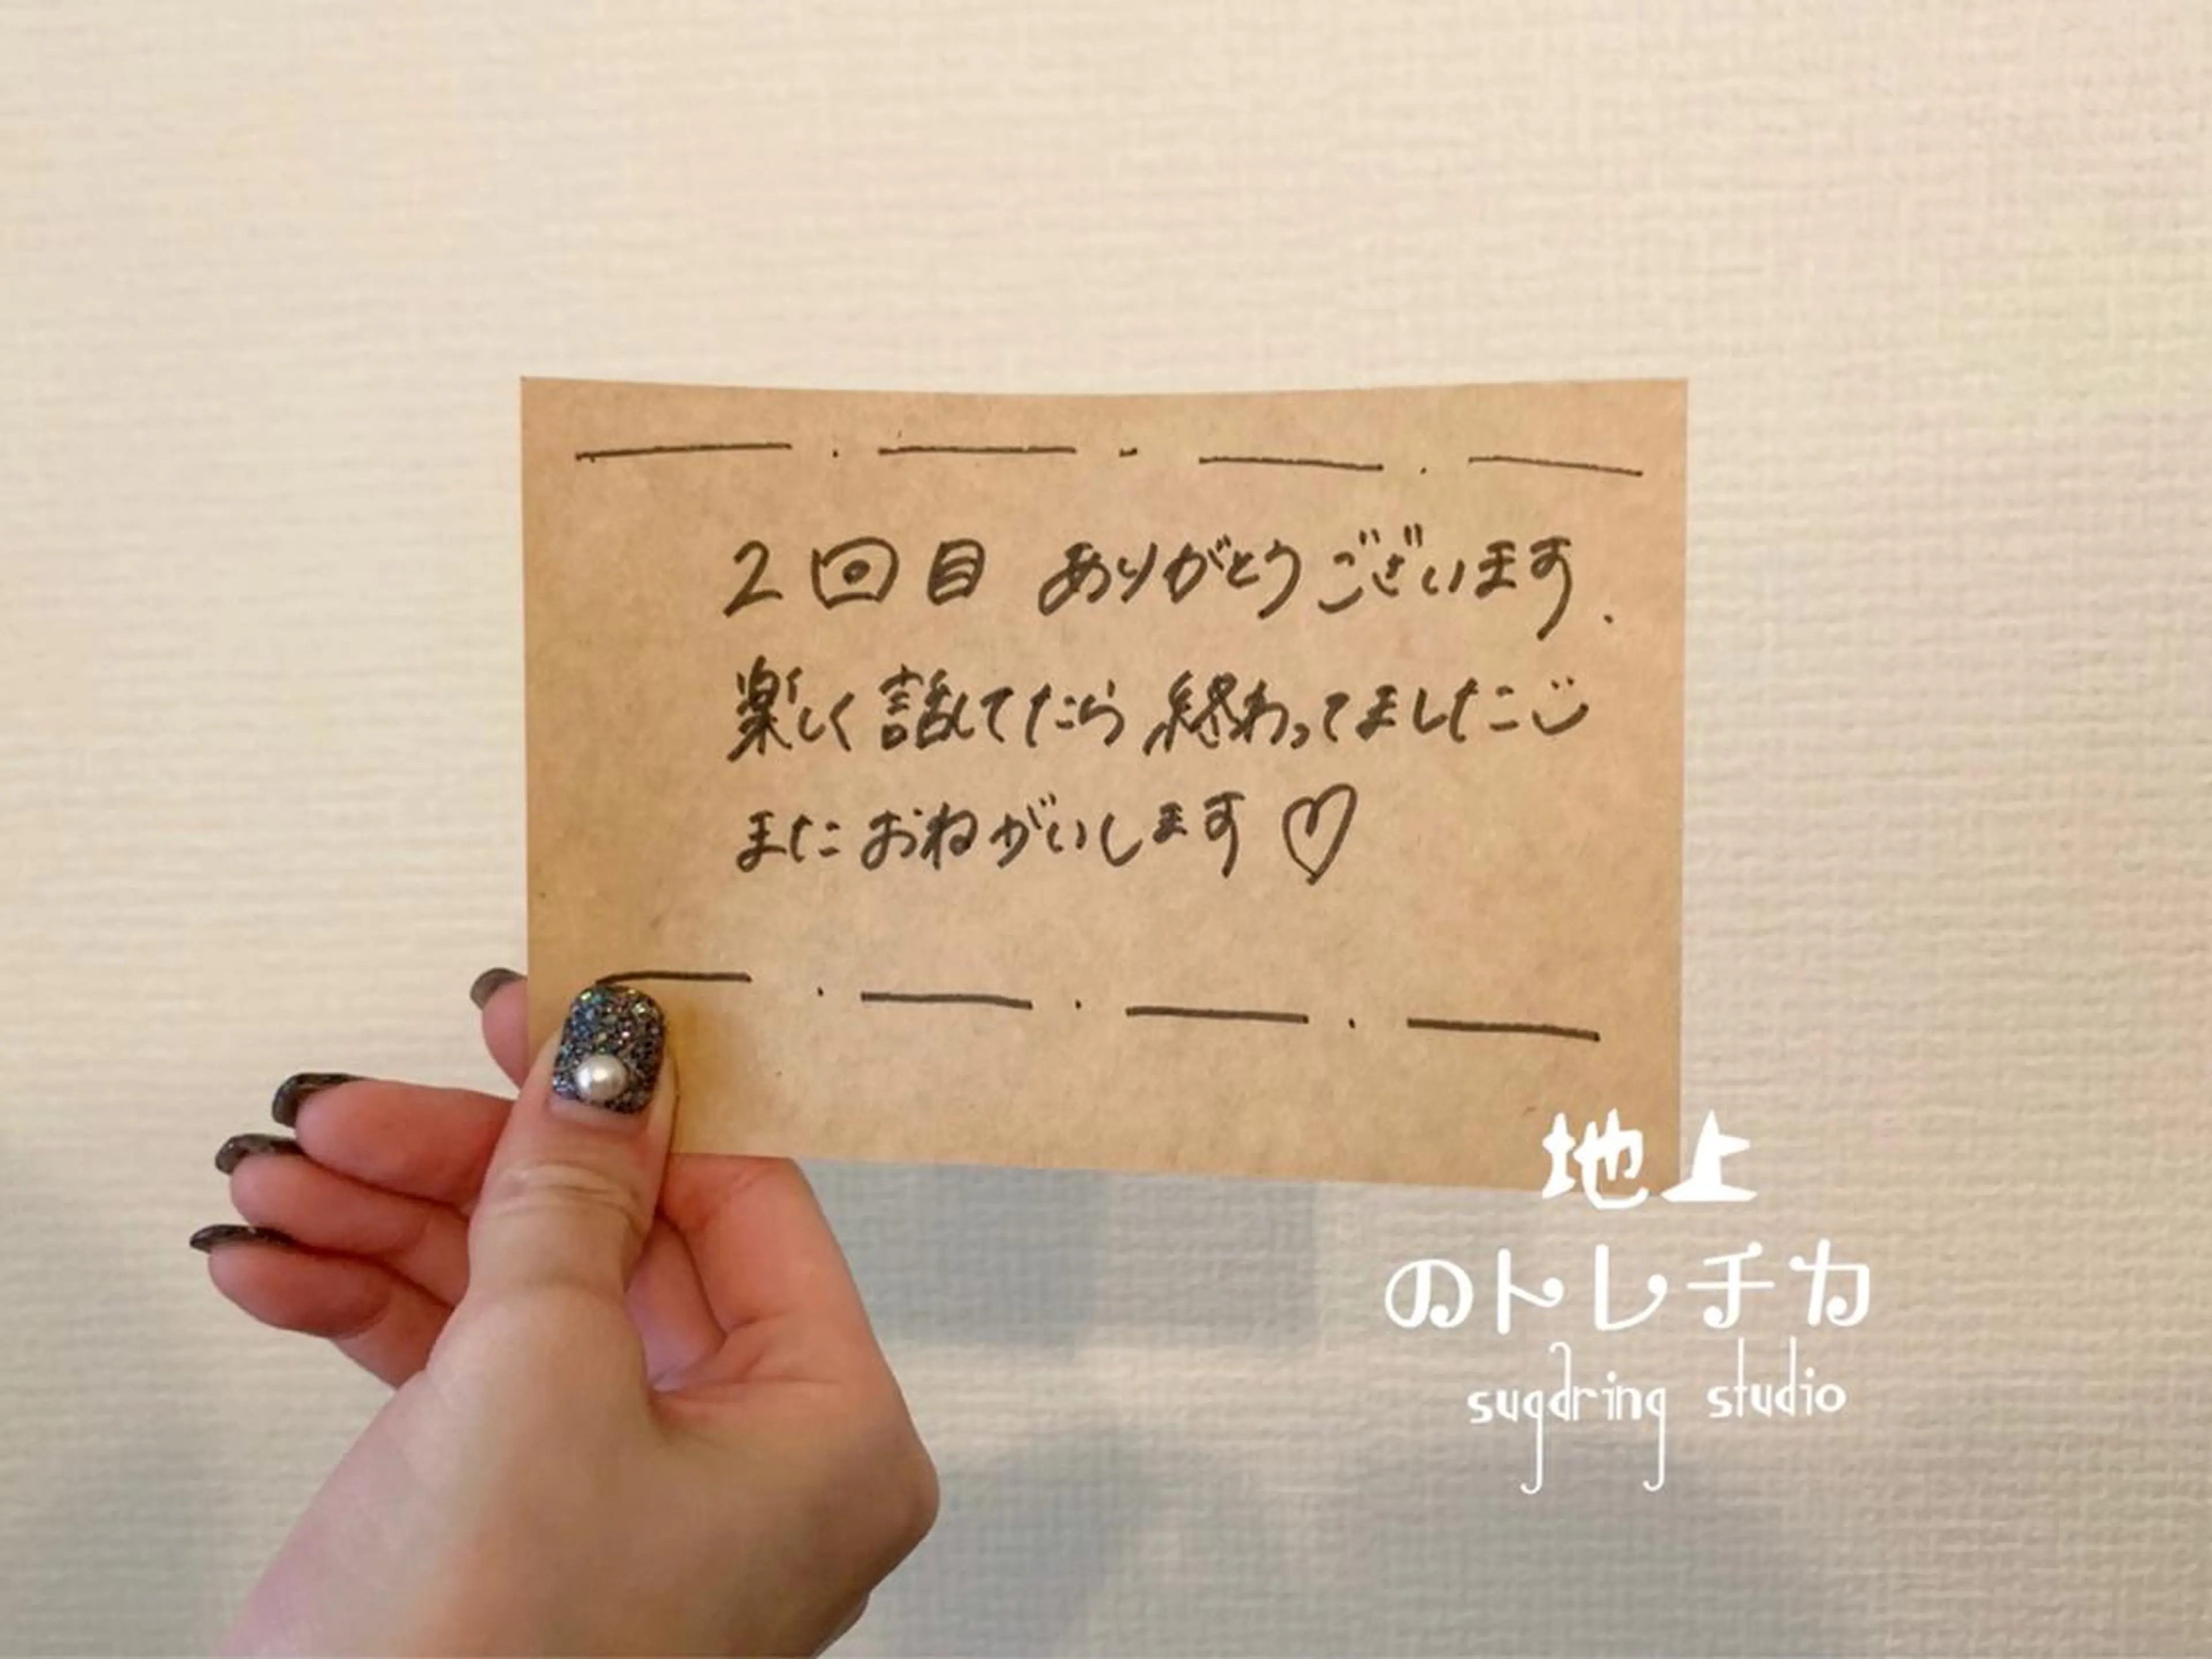 2回目 ありがとうございます.
楽しく話してたら 終わってました
また おねがいします♡
地上
のトレチカ
sugaring studio